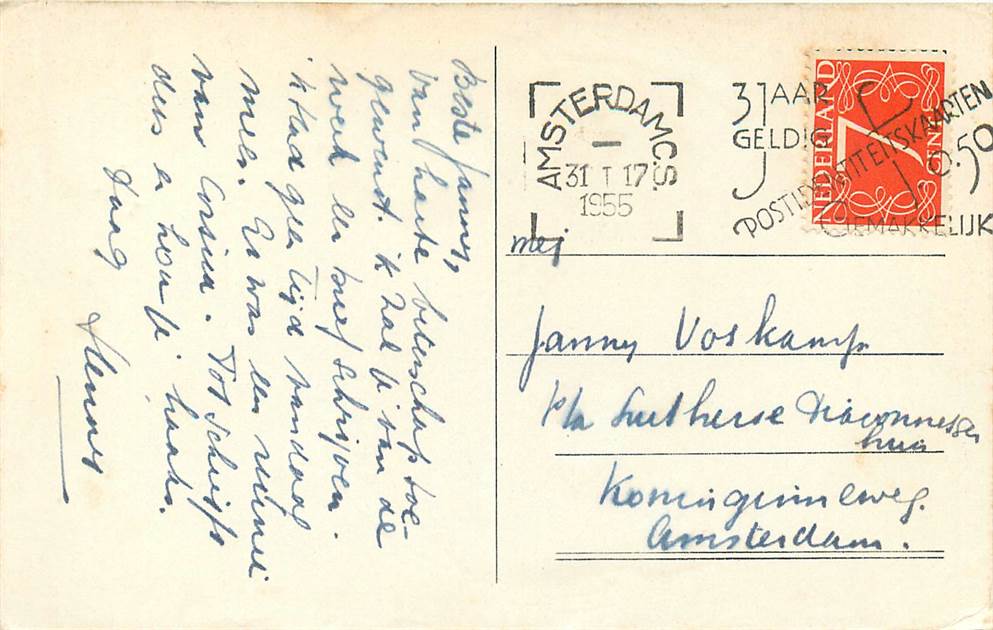 Beste Janny,
Van harte beterschap toe-
gewenst. ik zal je van de
week een brief schrijven.
ik had geen tijd vandaag
meer. Er was een nichtje
van Cosina. Tot schrijfs
dus en hou je haaks.
Daag
Hennes
AMSTERDAM C.S.
31 I 17
1955
3 JAAR
GELDIG
POSTIDENTITEITSKAARTEN
f 0.50
GEMAKKELIJK
NEDERLAND
7
CENT
mej
Janny Voskamp
p/a Lutherse Diaconessen
huis
Koninginneweg.
Amsterdam.